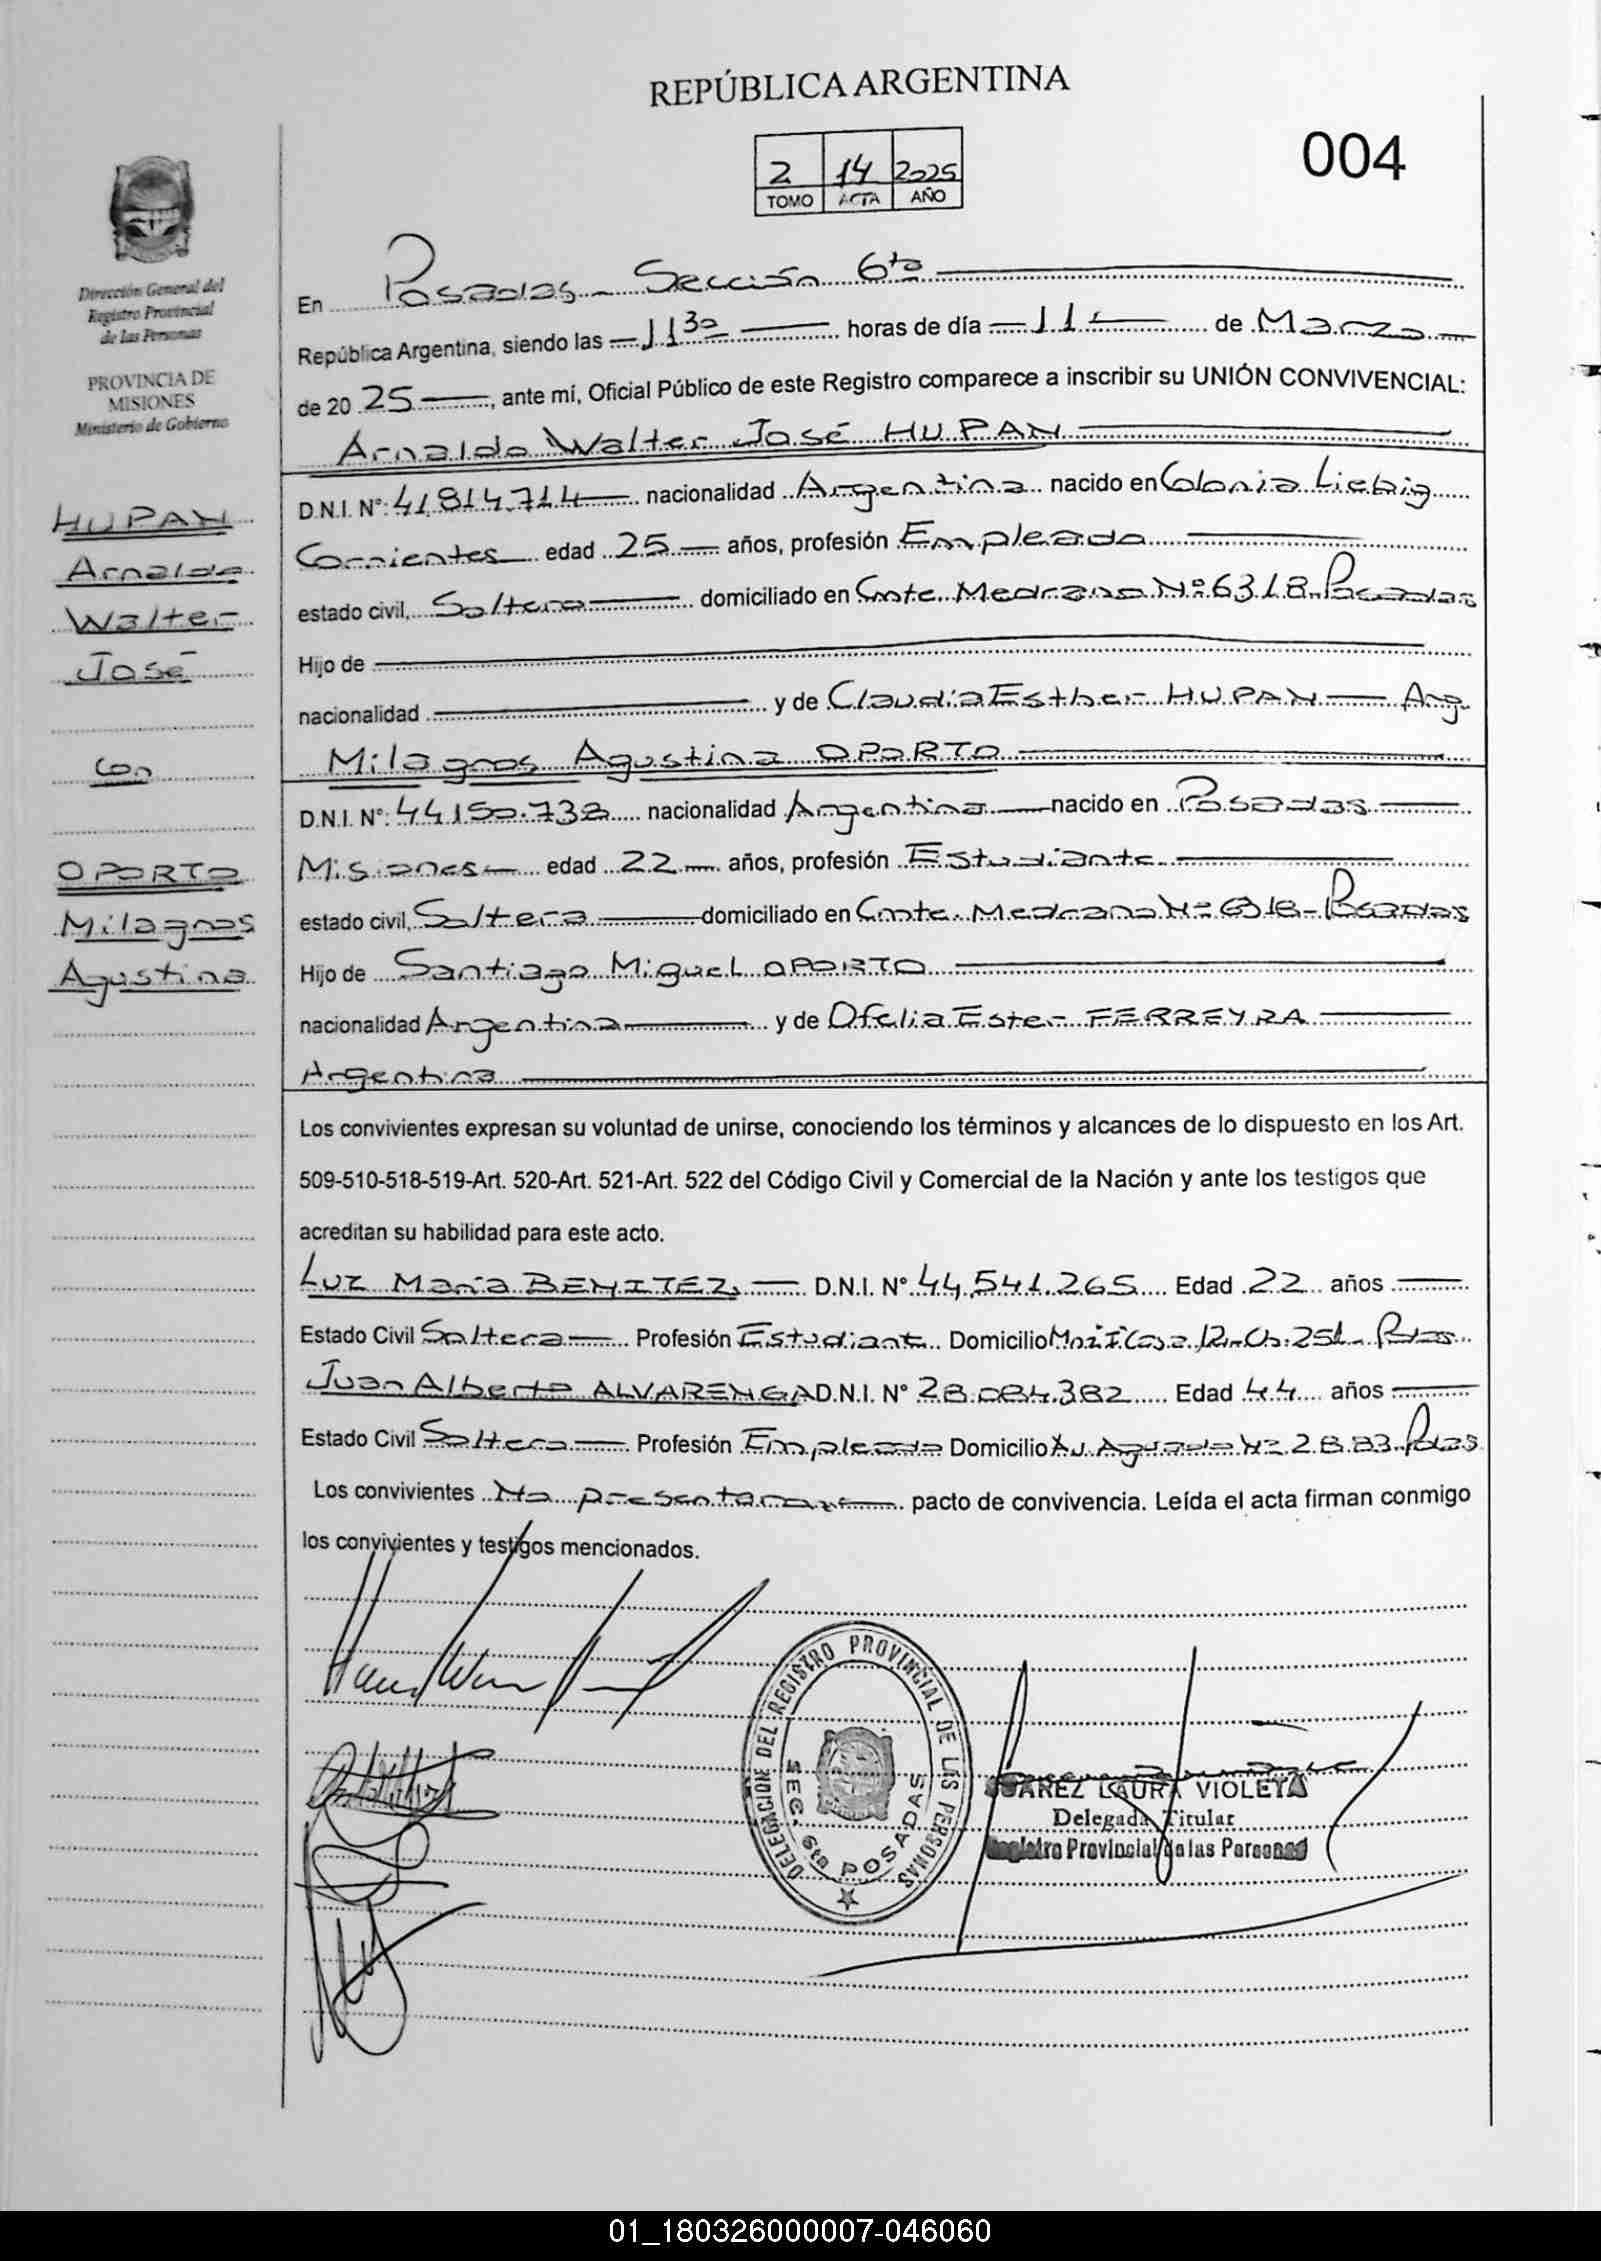 REPÚBLICA ARGENTINA
004
2 14 2025
TOMO ACTA AÑO
Dirección General del
Registro Provincial
de las Personas
PROVINCIA DE
MISIONES
Ministerio de Gobierno
HUPAN
Arnaldo
Walter
José
Con
OPORTO
Milagros
Agustina
En Posadas - Sección 6ta
República Argentina, siendo las 11 30 horas de día 11 de Marzo
de 20 25, ante mí, Oficial Público de este Registro comparece a inscribir su UNIÓN CONVIVENCIAL:
Arnaldo Walter José HUPAN
D.N.I. N°: 41.814.714 nacionalidad Argentina nacido en Colonia Liebig
Corrientes edad 25 años, profesión Empleado
estado civil, Soltero domiciliado en Cmte. Medrano N° 6318 - Posadas
Hijo de
nacionalidad y de Claudia Esther HUPAN Arg.
Milagros Agustina OPORTO
D.N.I. N°: 44.150.738 nacionalidad Argentina nacido en Posadas
Misiones edad 22 años, profesión Estudiante
estado civil, Soltera domiciliado en Cmte. Medrano N° 6318 - Posadas
Hijo de Santiago Miguel OPORTO
nacionalidad Argentina y de Ofelia Ester FERREYRA
Argentina
Los convivientes expresan su voluntad de unirse, conociendo los términos y alcances de lo dispuesto en los Art.
509-510-518-519-Art. 520-Art. 521-Art. 522 del Código Civil y Comercial de la Nación y ante los testigos que
acreditan su habilidad para este acto.
Luz María BENITEZ, D.N.I. N° 44.541.265 Edad 22 años
Estado Civil Soltera Profesión Estudiante Domicilio Casa 12 - Ch. 251 - Pdas
Juan Alberto ALVARENGA D.N.I. N° 28.084.382 Edad 44 años
Estado Civil Soltero Profesión Empleado Domicilio Av. Aguado N° 2883 Pdas
Los convivientes No presentaron pacto de convivencia. Leída el acta firman conmigo
los convivientes y testigos mencionados.
DELEGACION DEL REGISTRO PROVINCIAL DE LAS PERSONAS
SEC. 6ta POSADAS
SUAREZ LAURA VIOLETA
Delegada Titular
Registro Provincial de las Personas
01_180326000007-046060